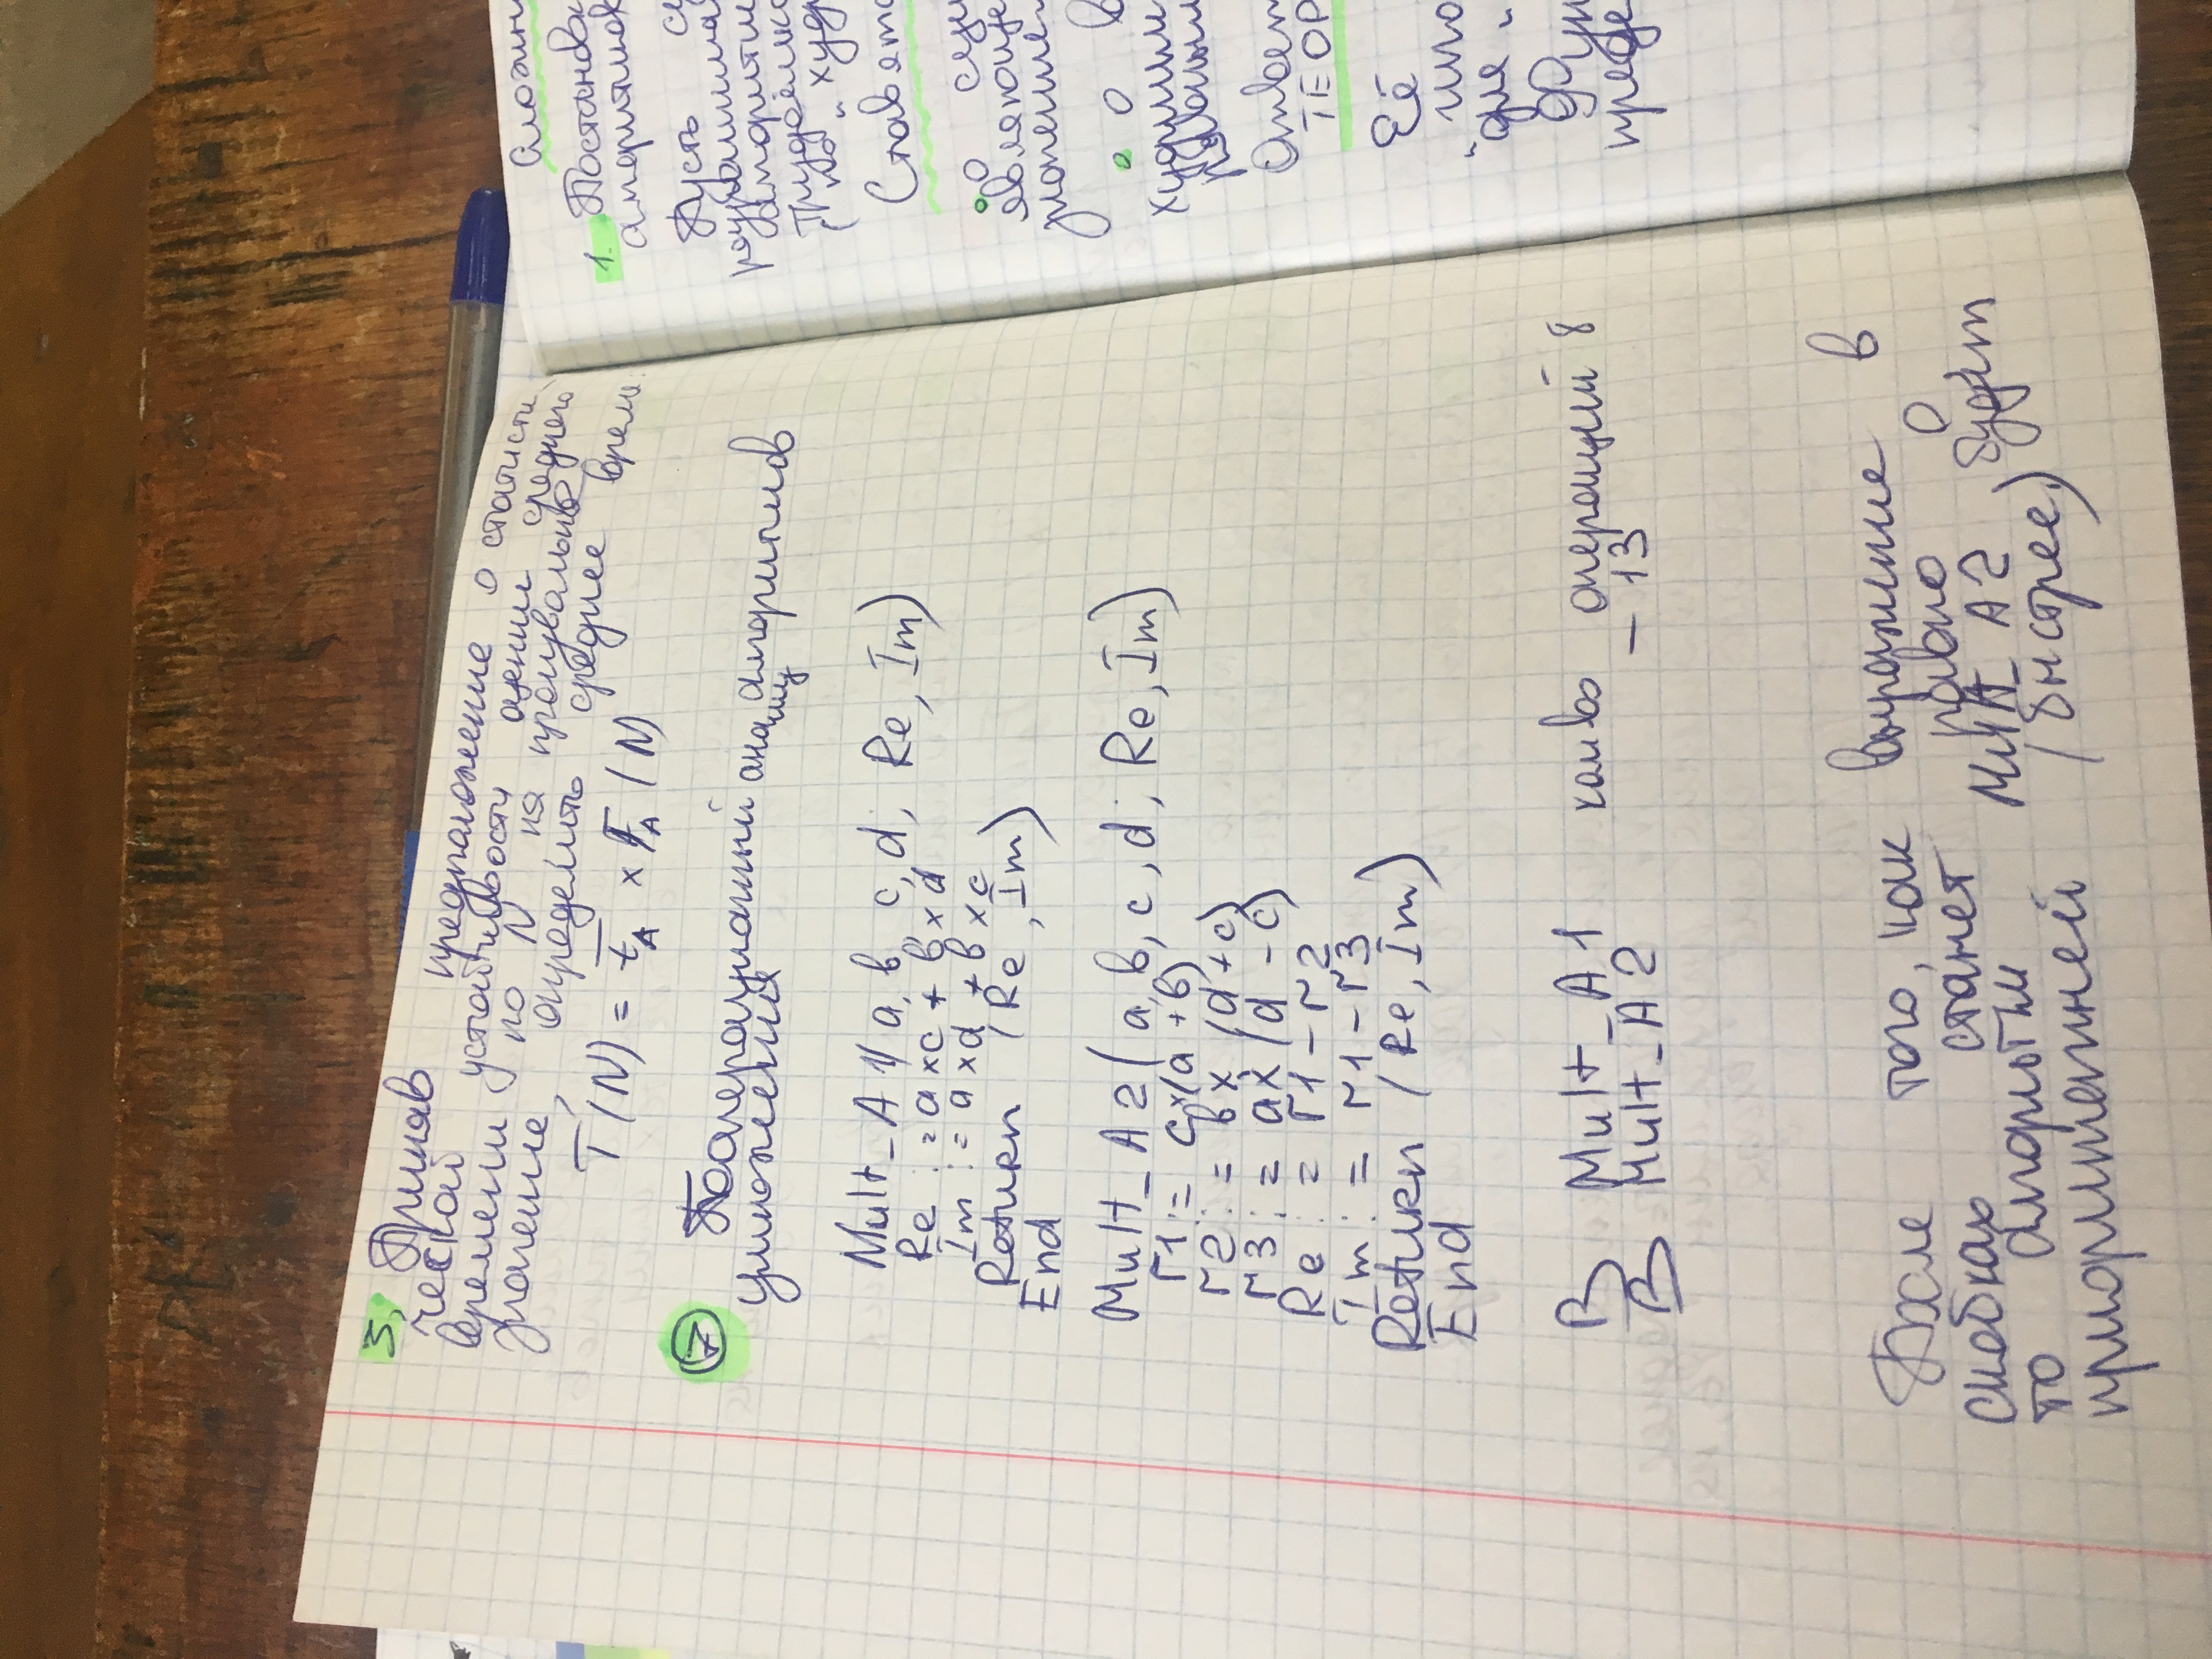 3, Приняв предположение о статисти
ческой устойчивости оценки среднего
времени по N, на произвольное
значение, определить среднее время.
T̅(N) = t̅_A × F̅_A (N)
7 Пооперационный анализ алгоритмов
умножения
Mult_A1(a, b, c, d; Re, Im)
Re := a×c + b×d
Im := a×d + b×c
Return (Re, Im)
End
Mult_A2(a, b, c, d; Re, Im)
r1:= c×(a+b)
r2:= b×(d+c)
r3:= a×(d-c)
Re := r1-r2
Im := r1-r3
Return (Re, Im)
End
В Mult_A1 кол во операций 8
В Mult_A2 – 13
После того, как выражение в
скобках станет равно 0,
то алгоритм Mult_A2 будет
приоритетней (быстрее.)
Сложн
1. Постановк
алгоритмов
Пусть су
разрешима
алгоритм
трудоёмко
(по "худ
Ставятс
о сущ
являюще
значением
о в
худшим
равным
Ответ
ТЕОР
Её
что
"для "
Фун
преде